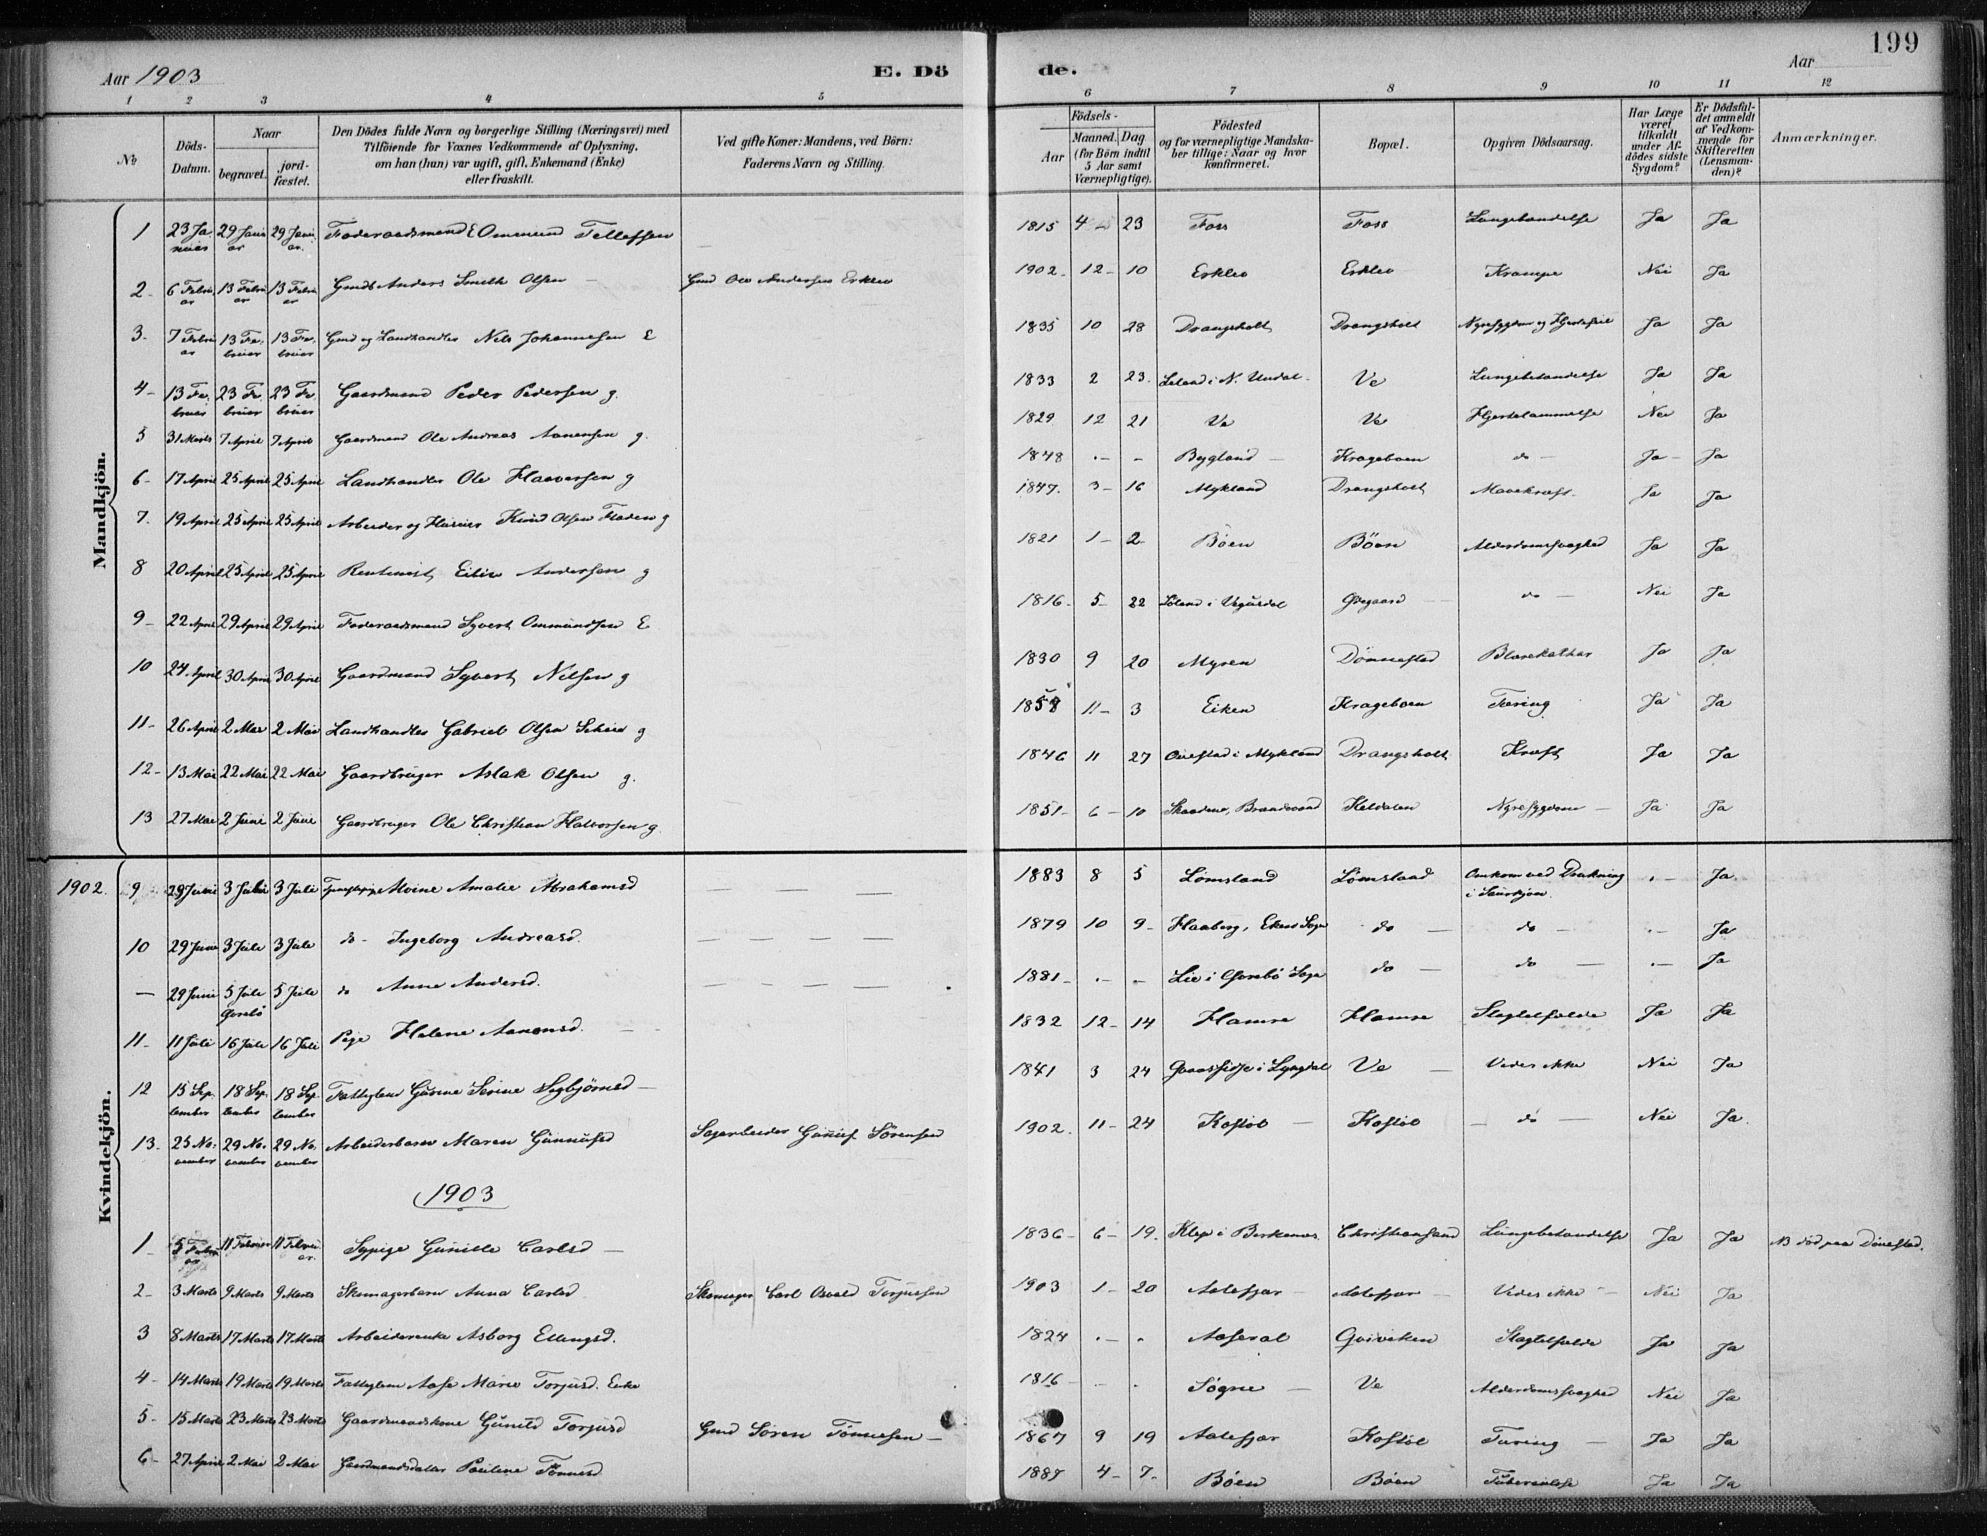 199
Aar 1903
E. Dö
de.
Aar
1 2 3 4 5 6 7 8 9 10 11 12
No
Döds-Datum.
Naar
begravet.
jord-fæstet.
Den Dödes fulde Navn og borgerlige Stilling (Næringsvei) med
Tilföiende for Voxnes Vedkommende af Oplysning,
om han (hun) var ugift, gift, Enkemand (Enke)
eller fraskilt.
Ved gifte Koner: Mandens, ved Börn:
Faderens Navn og Stilling.
Födsels-
Aar
Maaned. Dag
(for Börn indtil
5 Aar samt
Værnepligtige).
Födested
og for værnepligtige Mandska-
ber tillige: Naar og hvor
konfirmeret.
Bopæl.
Opgiven Dödsaarsag.
Har Læge
været
tilkaldt
under Af-
dödes sidste
Sygdom?
Er Dödsfal-
det anmeldt
af Vedkom-
mende for
Skifteretten
(Lensman-
den)?
Anmærkninger.
Mandkjön.
1 23 Januar 29 Januar 29 Januar Föderaadsmand E Ommund Tellefsen — 1815 4 23 Foss Foss Lungebetændelse Ja Ja
2 - 6 Februar 13 Februar 13 Februar Gmds Anders Smith Olsen — Gmd Ole Andersen Erkleo 1902 - 12 - 10 Erkleo Erkleo Krampe Nei Ja
3. 7 Februar 13 Februar 13 Februar Gmd og Landhandler Nils Johannesen E 1835 10 28 Drangsholt Drangsholt Nyresygdom og Hjertefeil Ja Ja
4 - 13 Februar 23 Februar 23 Februar Gaardmand Peder Pedersen g. 1833 2 23. Leland i N. Undal - Ve Lungebetændelse Ja Ja
5 31 Marts 7 April 7 April Gaardmand Ole Andreas Aanensen g. 1829 12 21 Ve Ve Hjertelammelse Nei Ja
6 - 17 April 25 April 25 April Landhandler Ole Haavorsen g 1848 . - - Bygland — Krageboen do — Ja - Ja
7. 19 April 25 April 25 April Arbeider og Huseier Knud Olsen Fladen g 1847. 3 - 16 Mykland Drangsholt Mavekræft. Ja Ja
8 20 April 25 April 25 April Rentenist Eiliv Andersen g 1821 1 - 2 - Böen Böen Alderdomssvaghed Ja Ja
9 - 22 April 29 April 29 April Föderaadsmand Syvert Ommundsen E 1816 - 5 - 22 Löland i Vegusdal Ödegaard — do — Nei Ja
10 24 April 30 April 30 April Gaardmand Syvert Nilsen g 1830 9 20 Myren Dönnestad Blærekathar Ja Ja
11 - 26 April 2 Mai 2 Mai Landhandler Gabriel Olsen g 1858 11 - 3 Eiken Krageboen Tæring Ja Ja
12 - 13 Mai 22 Mai 22 Mai Gaardbruger Aslak Olsen g. 1846 11 27 i Mykland Drangsholt Kræft Ja Ja
13 27 Mai 2 Juni 2 Juni Gaardbruger Ole Christian Halvorsen g. 1851 - 6 - 10 Keldalen Nyresygdom — Ja Ja
Kvindekjön.
1902. 9 29 Juni 3 Juli 3 Juli Alvine Amalie Abrahamsd — — — 1883 8 5 Lömsland Lömsland Omkom ved Drukning Ja
10 29 Juni 3 Juli 3 Juli do - Ingeborg Andreasd. — — — 1879 10 9 - Haaberg, Ekens Sogn do — do — Ja
— 29 Juni 5 Juli 5 Juli do Anne Andersd. — — — 1881 - . - - Lie i Sogn do — do — Ja
11 - 11 Juli 16 Juli 16 Juli Pige Helene Aanensd. — 1832 12 - 14 Hamre Hamre Slagtilfælde Ja Ja
12 15 September 18 September 18 September Fattiglem Gurine Serine — 1841 3 24 i Lyngdal Ve — Vides ikke Nei Ja
13 - 25 November 29 November 29 November Arbeiderbarn Maren Gunnufsd Sagarbeider Gunuf Sörensen 1902. 11 - 24 Kostöl — Kostöl — do — Nei Ja
1903
1 5 Februar 11 Februar 11 Februar Sypige Gunille Carlsd — 1836 - 6 - 19. Klep i Birkenes Christiansand Lungebetændelse Ja Ja NB död paa Dönestad.
2 - 3 Marts 9 Marts 9 Marts Skomagerbarn Anna Carlsd Skomager Carl Osvald Torjussen 1903 1 - 20 Aalefjær — Aalefjær — Vides ikke — Nei Ja
3 8 Marts 17 Marts 17 Marts Arbeiderenke Asborg Ellingsd. 1824 . - . Aaseral Qviviken Slagtilfælde Ja Ja
4 - 14 Marts 19 Marts 19 Marts Fattiglem Aase Marie Torjusd. Enke 1816 - - . Søgne — Ve Alderdomssvaghed Nei Ja
5 - 15 Marts 23 Marts 23 Marts Gaardmandskone Gunild Torjusd Gmd Sören Tönnesen — 1867 9 19 Aalefjær Kostöl Tæring — Ja Ja
6 - 27 April 2 Mai 2 Mai Gaardmandsdatter Pauline Tönnesd 1887 4 - 7 - Böen Böen Tuberculose Ja Ja